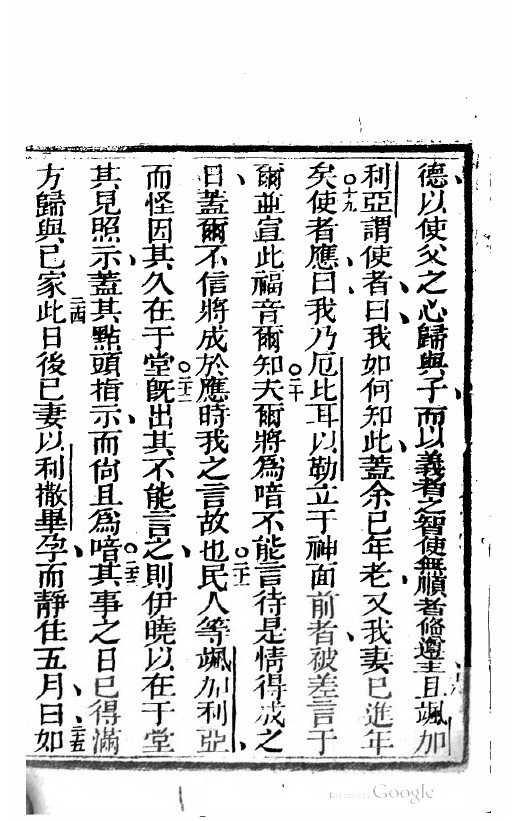 德以使父之心歸與子而以義者之智使無順者偹遵主且颯加
利亞謂使者曰我如何知此蓋余已年老又我妻已進年
矣○十九使者應曰我乃厄比耳以勒立于神面前者被差言于
爾並宣此福音爾知夫○二十爾將為喑不能言待是情得成之
日蓋爾不信將成於應時我之言故也○二十一民人等颯加利亞
而怪因其久在于堂○二十二旣出其不能言之則伊曉以在于堂
其見照示蓋其點頭指示而尙且為喑○二十三其事之日已得滿
方歸與已家二四此日後已妻以利撒畢孕而靜住五月曰二五如
Google